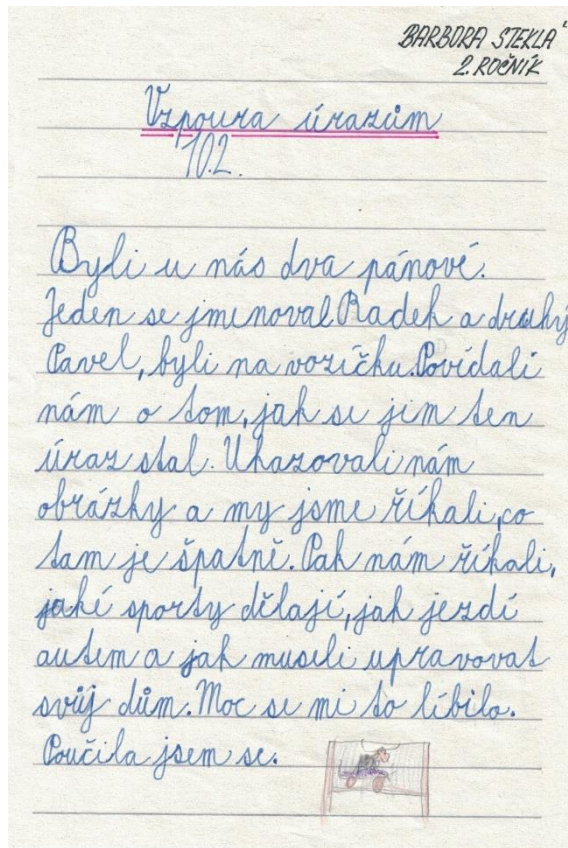 BARBORA STEKLÁ
2. ROČNÍK
Vzpoura úrazům
10.2.
Byli u nás dva pánové.
Jeden se jmenoval Radek a druhý
Pavel, byli na vozíčku. Povídali
nám o tom, jak se jim ten
úraz stal. Ukazovali nám
obrázky a my jsme říkali, co
tam je špatně. Pak nám říkali,
jaké sporty dělají, jak jezdí
autem a jak museli upravovat
svůj dům. Moc se mi to líbilo.
Poučila jsem se.